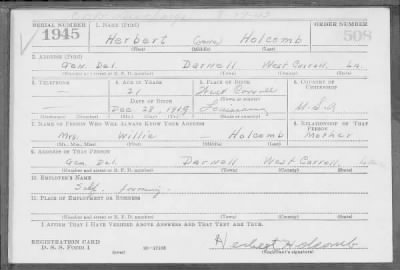 SERIAL NUMBER 1. NAME (Print) ORDER NUMBER
1945 Herbert (none) Holcomb 508
(First) (Middle) (Last)
2. ADDRESS (Print)
Gen. Del. Darnell West Carroll La.
(Number and street or R. F. D. number) (Town) (County) (State)
3. TELEPHONE 4. AGE IN YEARS 5. PLACE OF BIRTH 6. COUNTRY OF CITIZENSHIP
— 21 West Carroll
DATE OF BIRTH (Town or county)
— Dec. 28, 1918 Louisiana U.S.A
(Exchange) (Number) (Mo.) (Day) (Yr.) (State or country)
7. NAME OF PERSON WHO WILL ALWAYS KNOW YOUR ADDRESS 8. RELATIONSHIP OF THAT PERSON
Mrs. Willie — Holcomb Mother
(Mr., Mrs., Miss) (First) (Middle) (Last)
9. ADDRESS OF THAT PERSON
Gen. Del. Darnell West Carroll
(Number and street or R. F. D. number) (Town) (County) (State)
10. EMPLOYER'S NAME
Self. farming.
11. PLACE OF EMPLOYMENT OR BUSINESS
(Number and street or R. F. D. number) (Town) (County) (State)
I AFFIRM THAT I HAVE VERIFIED ABOVE ANSWERS AND THAT THEY ARE TRUE.
REGISTRATION CARD
D. S. S. Form 1 (over) Herbert Holcomb
(Registrant's signature)